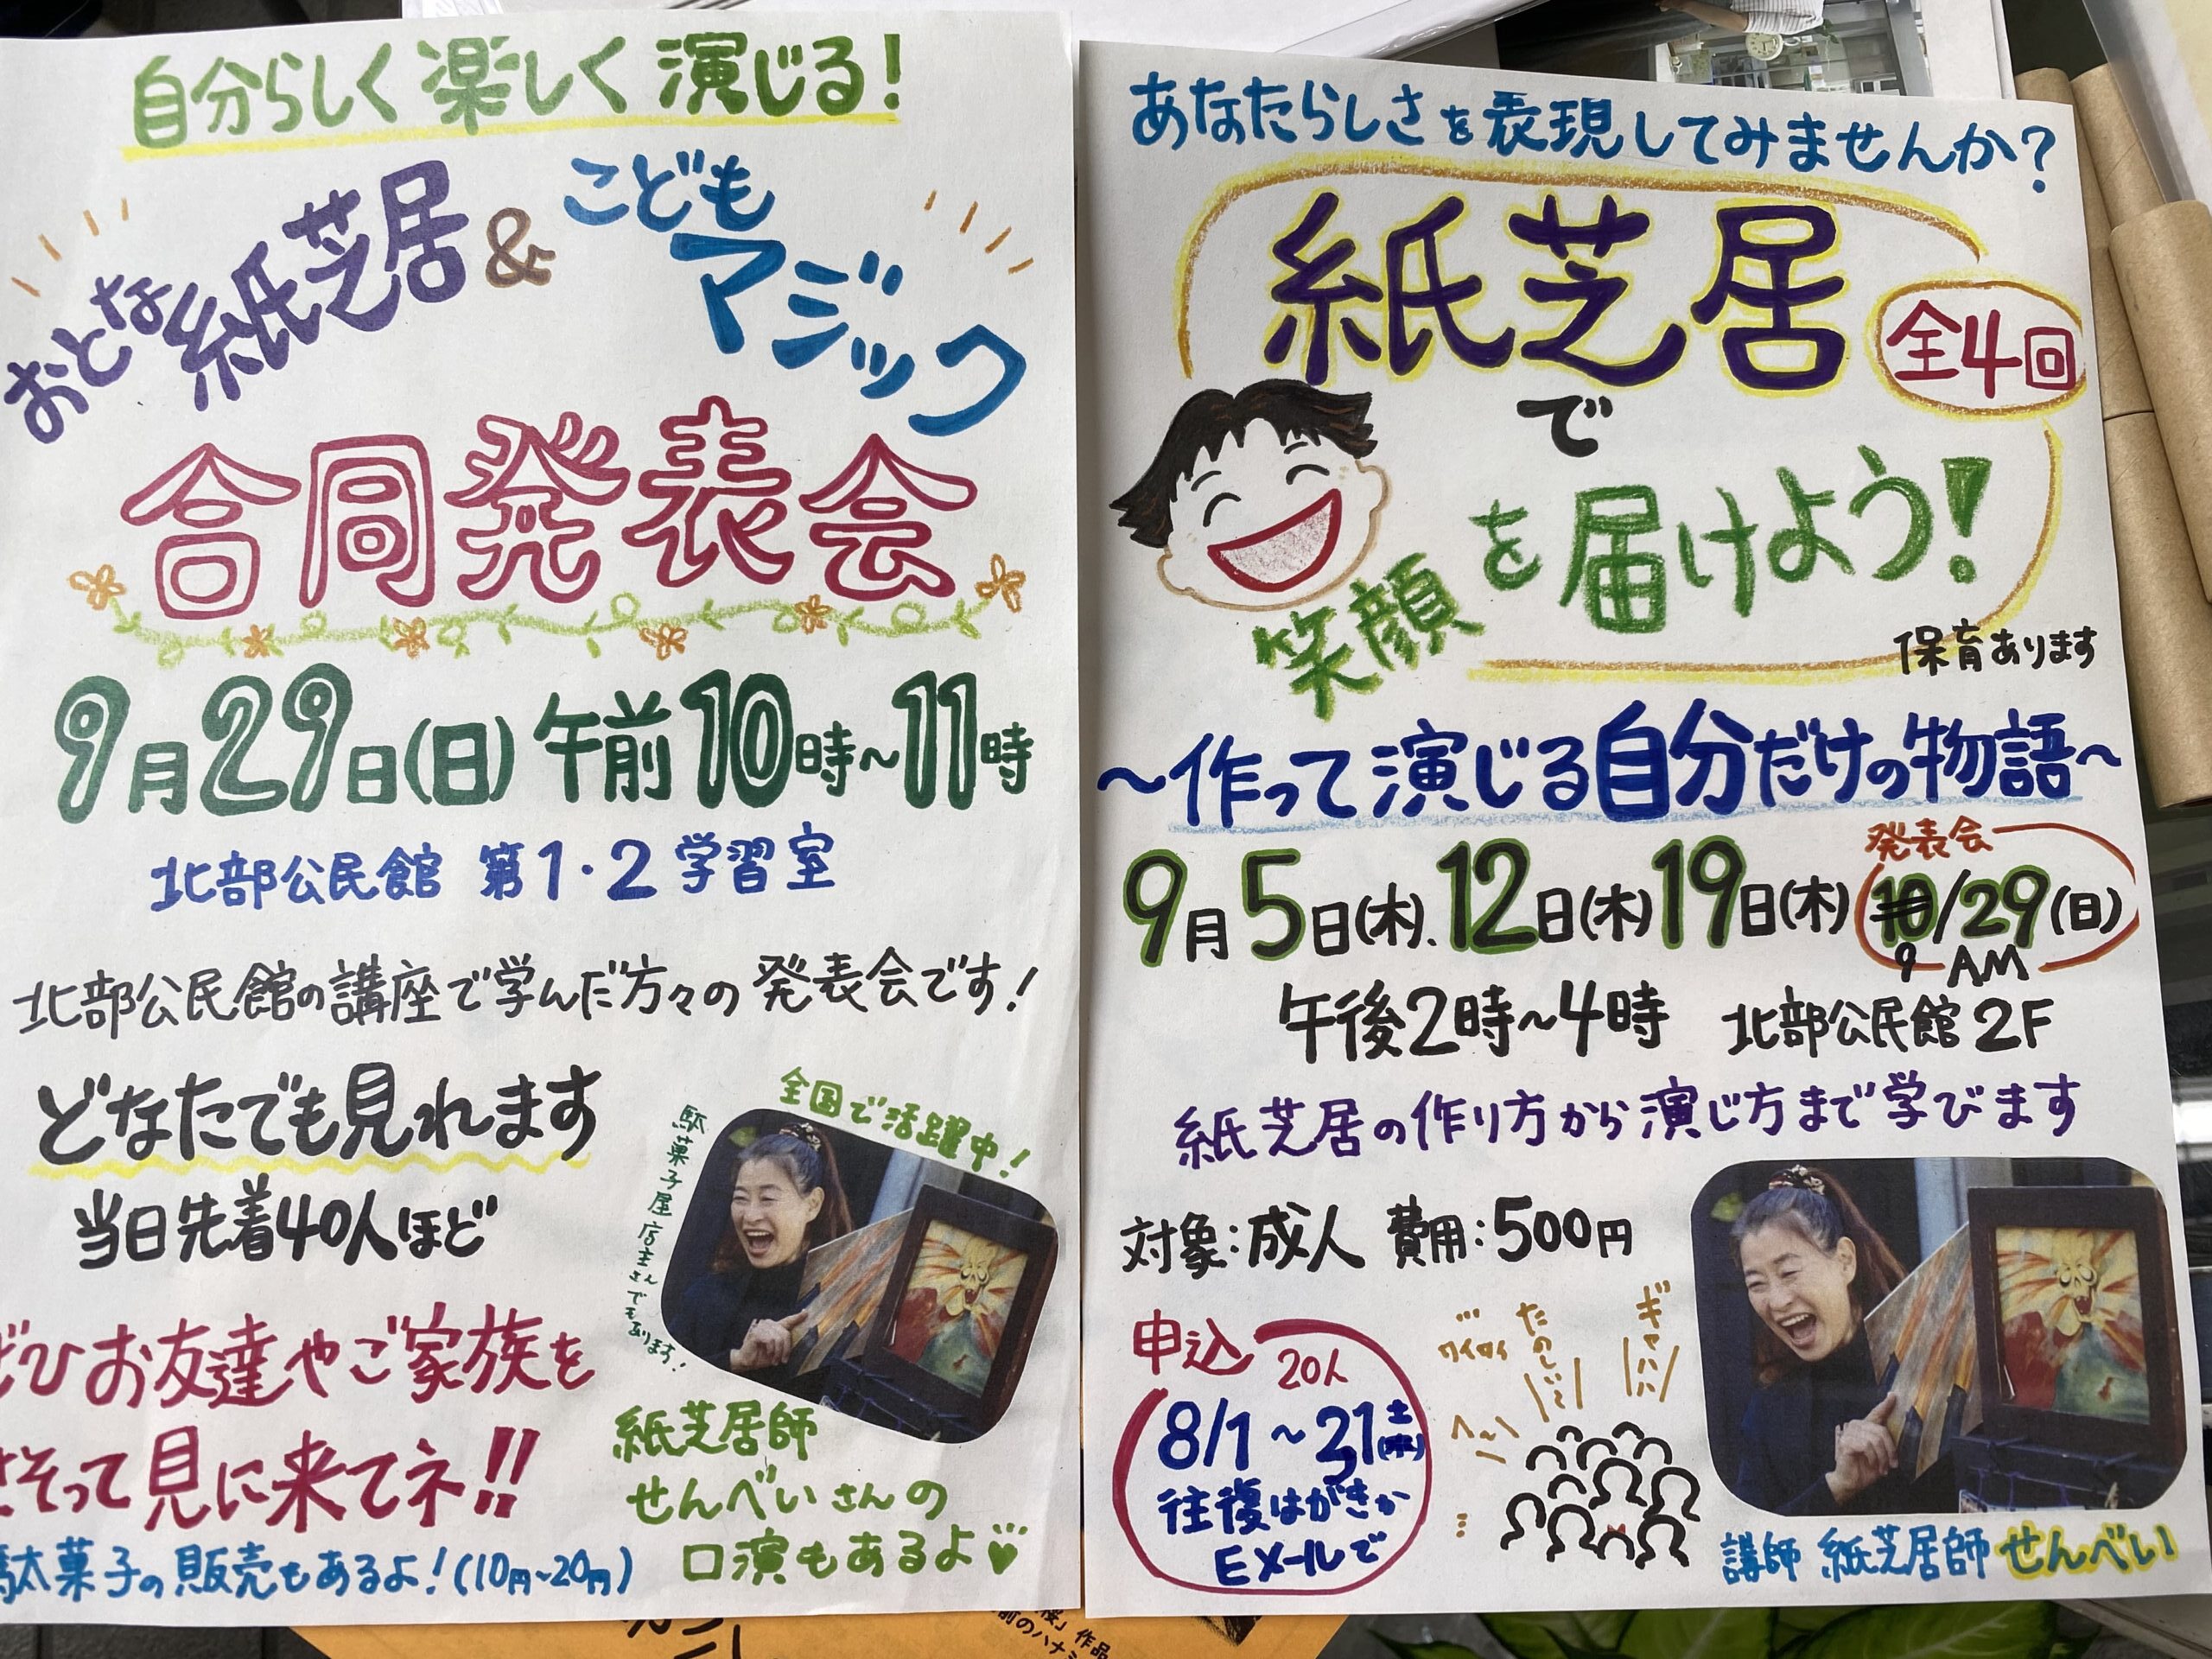 自分らしく楽しく演じる!
おとな紙芝居&こどもマジック
合同発表会
9月29日(日)午前10時~11時
北部公民館 第1・2学習室
北部公民館の講座で学んだ方々の発表会です!
どなたでも見れます
当日先着40人ほど
全国で活躍中!
駄菓子屋店主さんでもあります!
ぜひお友達やご家族を
さそって見に来てネ!!
紙芝居師
せんべいさんの
口演もあるよ
駄菓子の販売もあるよ!(10円~20円)
あなたらしさを表現してみませんか?
紙芝居
全4回
で
笑顔を届けよう!
保育あります
~作って演じる自分だけの物語~
発表会
9月5日(木).12日(木)19日(木) 10/29(日)
9 AM
午後2時~4時 北部公民館2F
紙芝居の作り方から演じ方まで学びます
対象:成人 費用:500円
申込 20人
8/1~31土
往復はがきか
Eメールで
ワイワイ
たのしい~
ギャハハハ
講師 紙芝居師 せんべい
作品
前のハナ